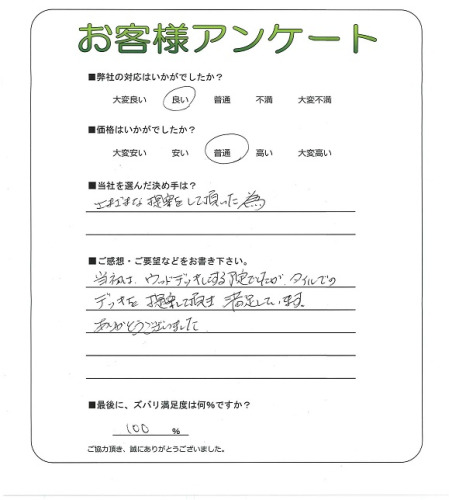 お客様アンケート
■弊社の対応はいかがでしたか?
大変良い 良い 普通 不満 大変不満
■価格はいかがでしたか?
大変安い 安い 普通 高い 大変高い
■当社を選んだ決め手は?
さまざまな提案をして頂いた為
■ご感想・ご要望などをお書き下さい。
当初は、ウッドデッキにする予定でしたが、タイルでの
デッキを提案して頂き満足しています。
ありがとうございました
■最後に、ズバリ満足度は何%ですか?
100 %
ご協力頂き、誠にありがとうございました。